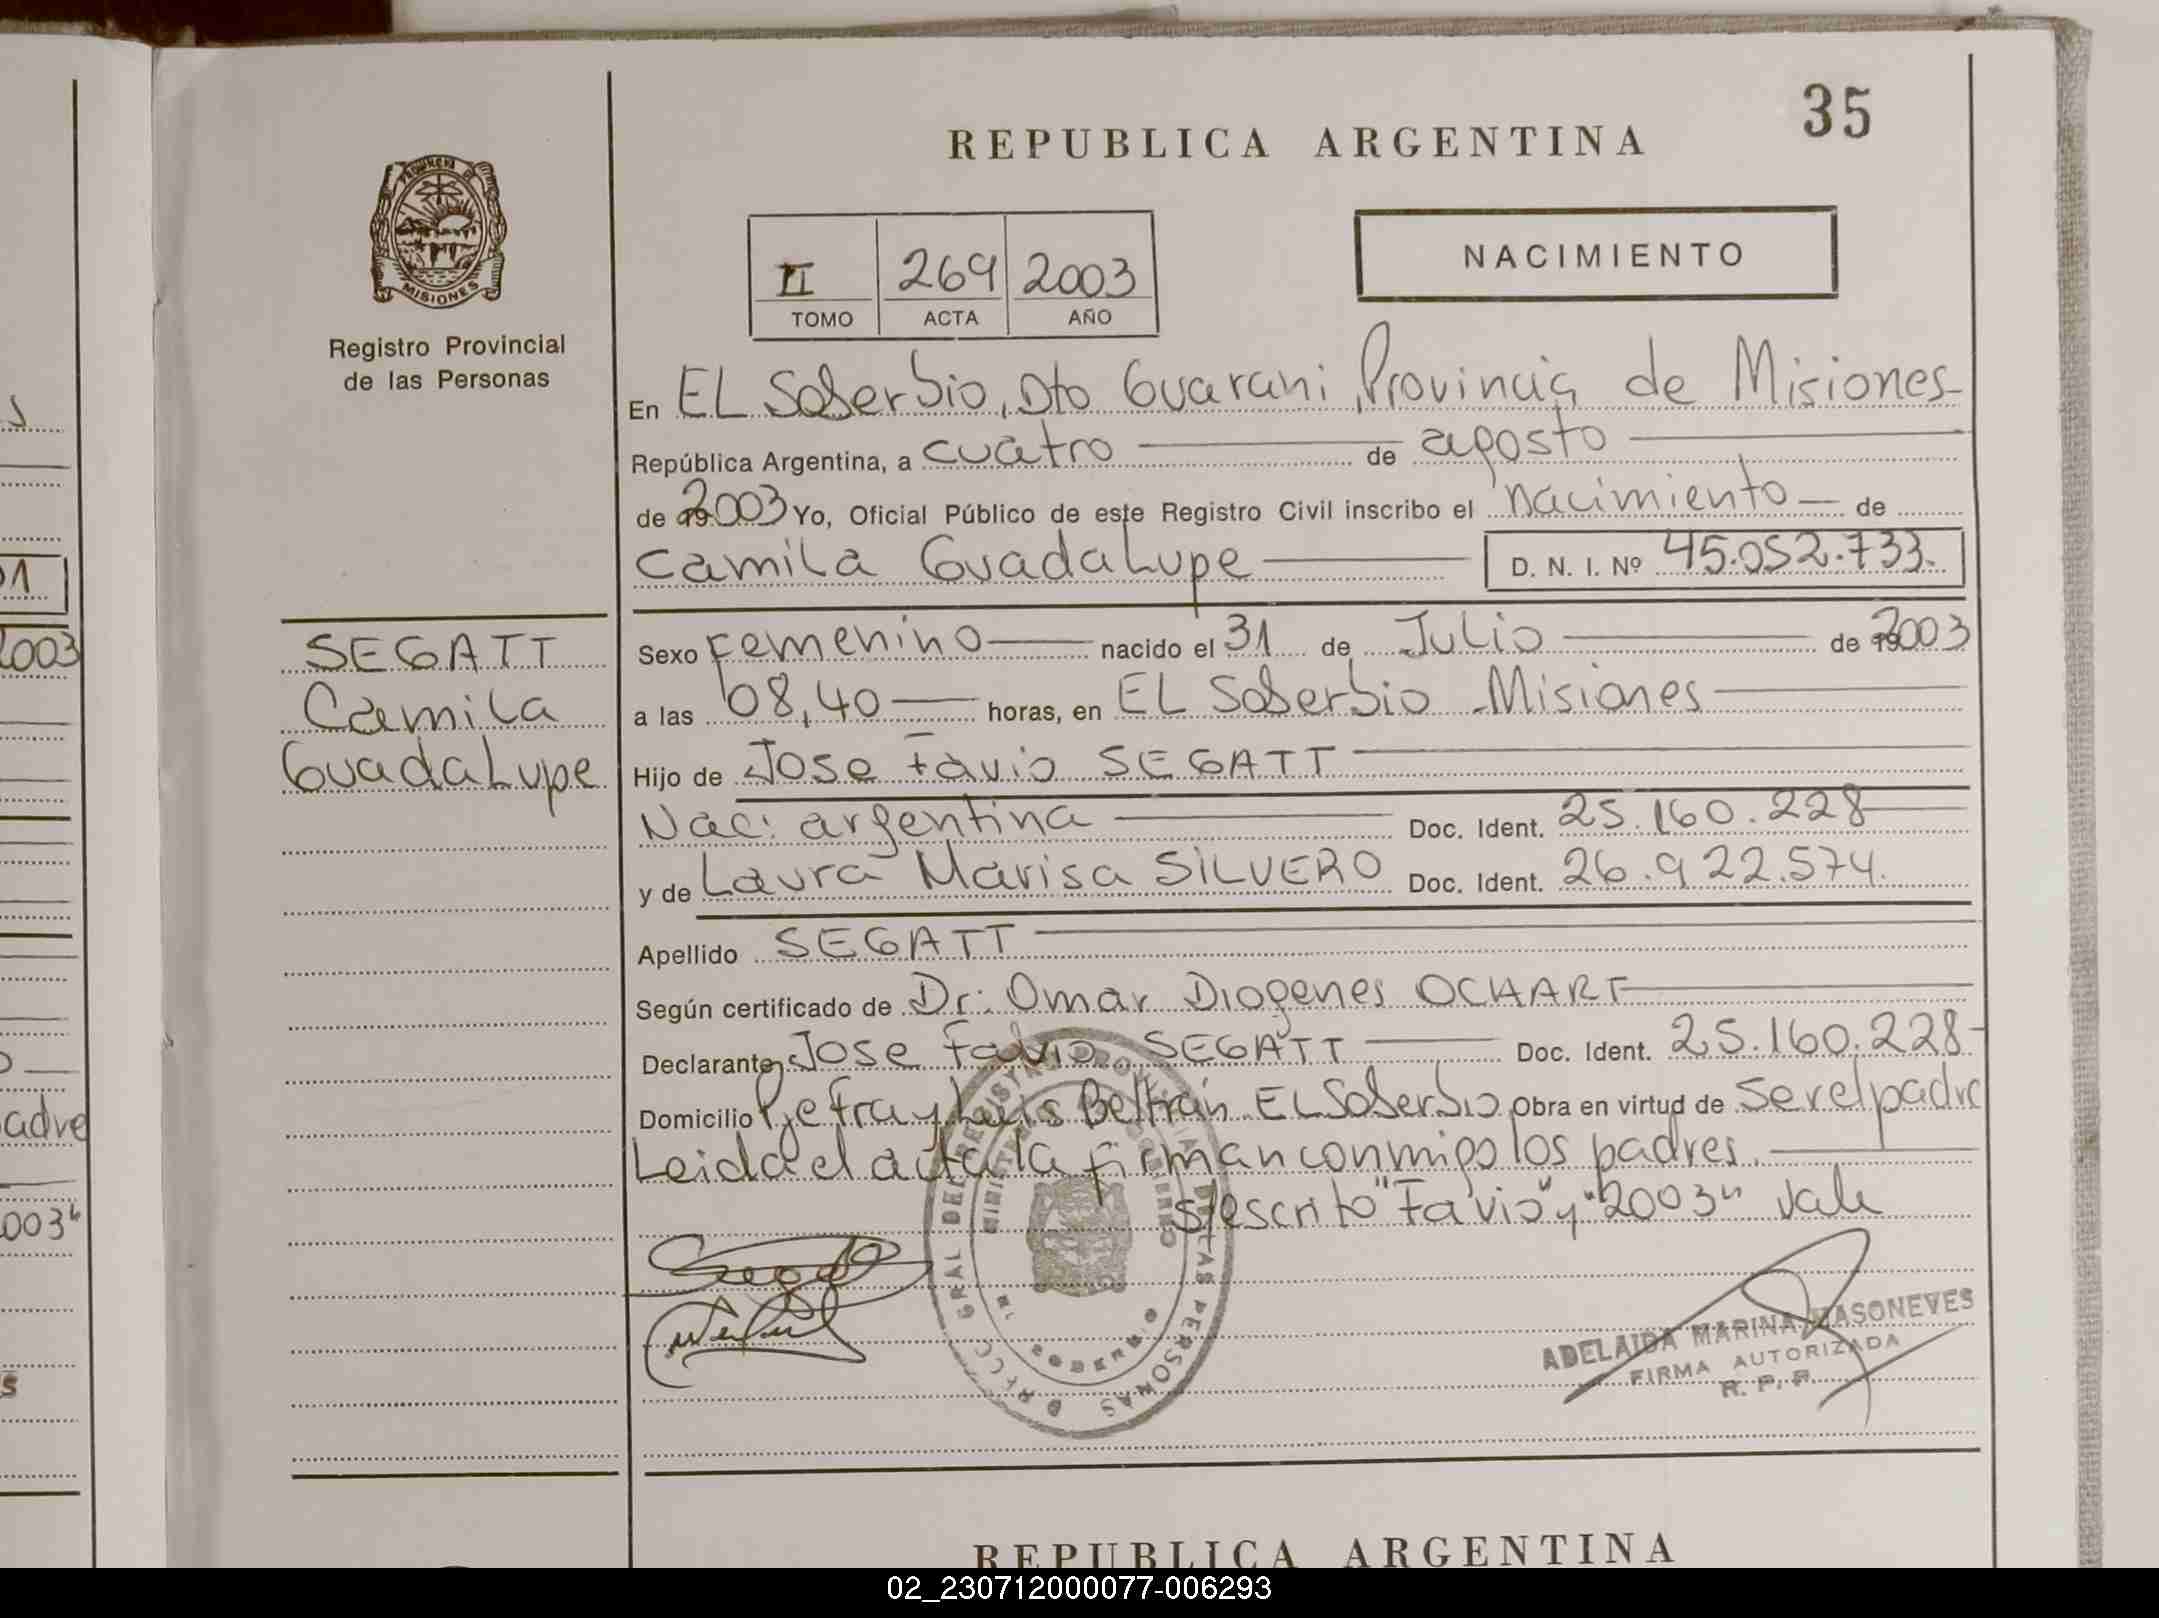 35
REPUBLICA ARGENTINA
PROVINCIA DE
MISIONES
Registro Provincial
de las Personas
NACIMIENTO
II 269 2003
TOMO ACTA AÑO
En EL Soberbio, Dto Guarani, Provincia de Misiones
República Argentina, a cuatro de agosto
de 2003 Yo, Oficial Público de este Registro Civil inscribo el nacimiento de
Camila Guadalupe D. N. I. Nº 45.052.733.
SEGATT
Camila
Guadalupe
Sexo Femenino nacido el 31 de Julio de 2003
a las 08,40 horas, en EL Soberbio - Misiones
Hijo de Jose Favio SEGATT
Nac: argentina Doc. Ident. 25.160.228
y de Laura Marisa SILVERO Doc. Ident. 26.922.574.
Apellido SEGATT
Según certificado de Dr: Omar Diogenes OCHART
Declarante Jose Favio SEGATT Doc. Ident. 25.160.228
Domicilio Pje Fray Luis Beltrán EL Soberbio Obra en virtud de ser el padre
Leida el acta la firman conmigo los padres.
s/escrito "Favio" y "2003" vale
ADELAIDA MARINA MASONEVES
FIRMA AUTORIZADA
R. P. P.
REPUBLICA ARGENTINA
02_230712000077-006293